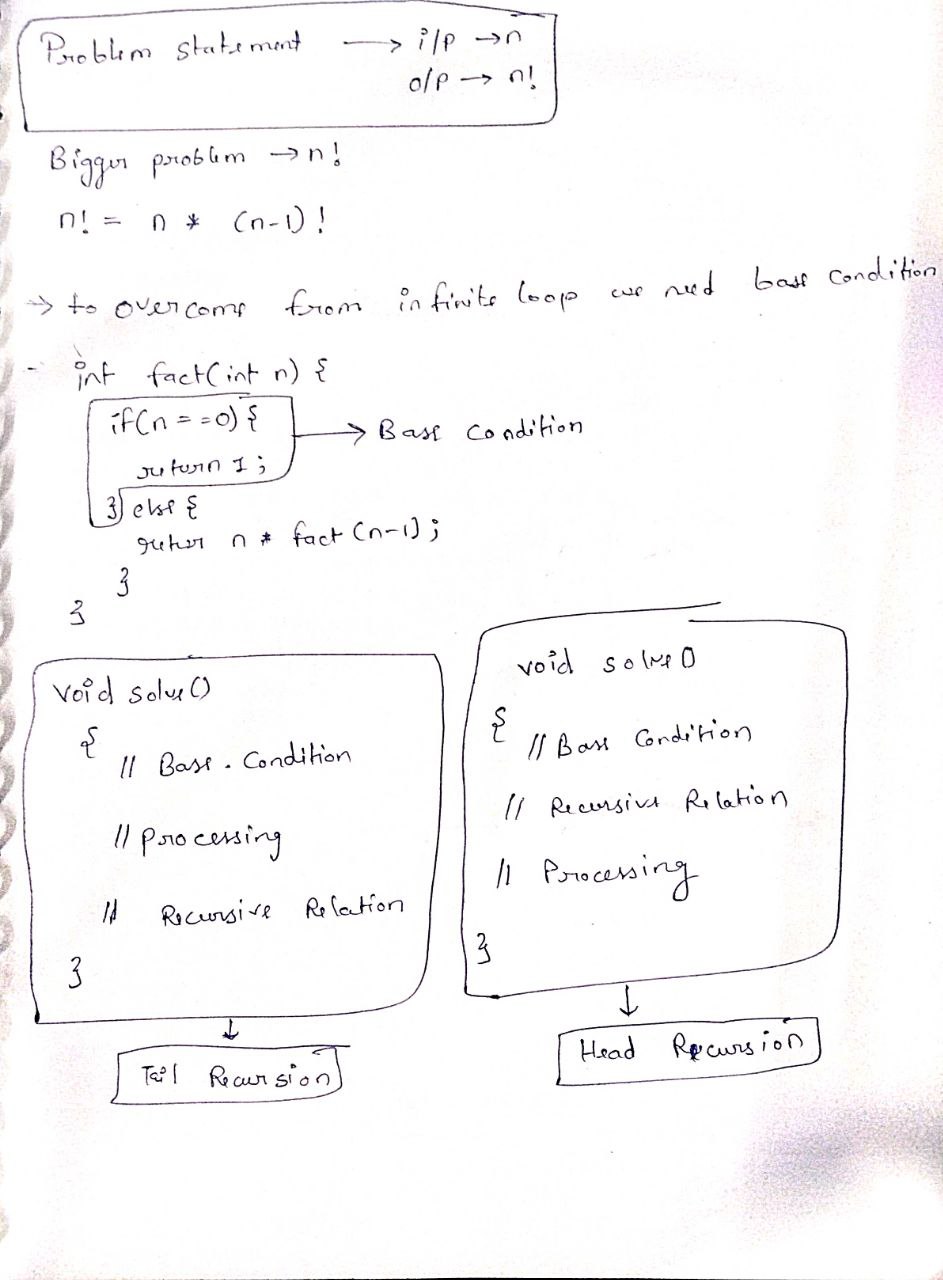 Problem statement → i/p → n
o/p → n!
Bigger problem → n!
n! = n * (n-1)!
→ to overcome from infinite loop we need base condition
- int fact(int n) {
if(n==0) { → Base Condition
return 1;
} else {
retur n * fact (n-1);
}
}
void solve()
{
// Base. Condition
// Processing
// Recursive Relation
}
↓
Tail Recursion
void solve()
{
// Base Condition
// Recursive Relation
// Processing
}
↓
Head Recursion